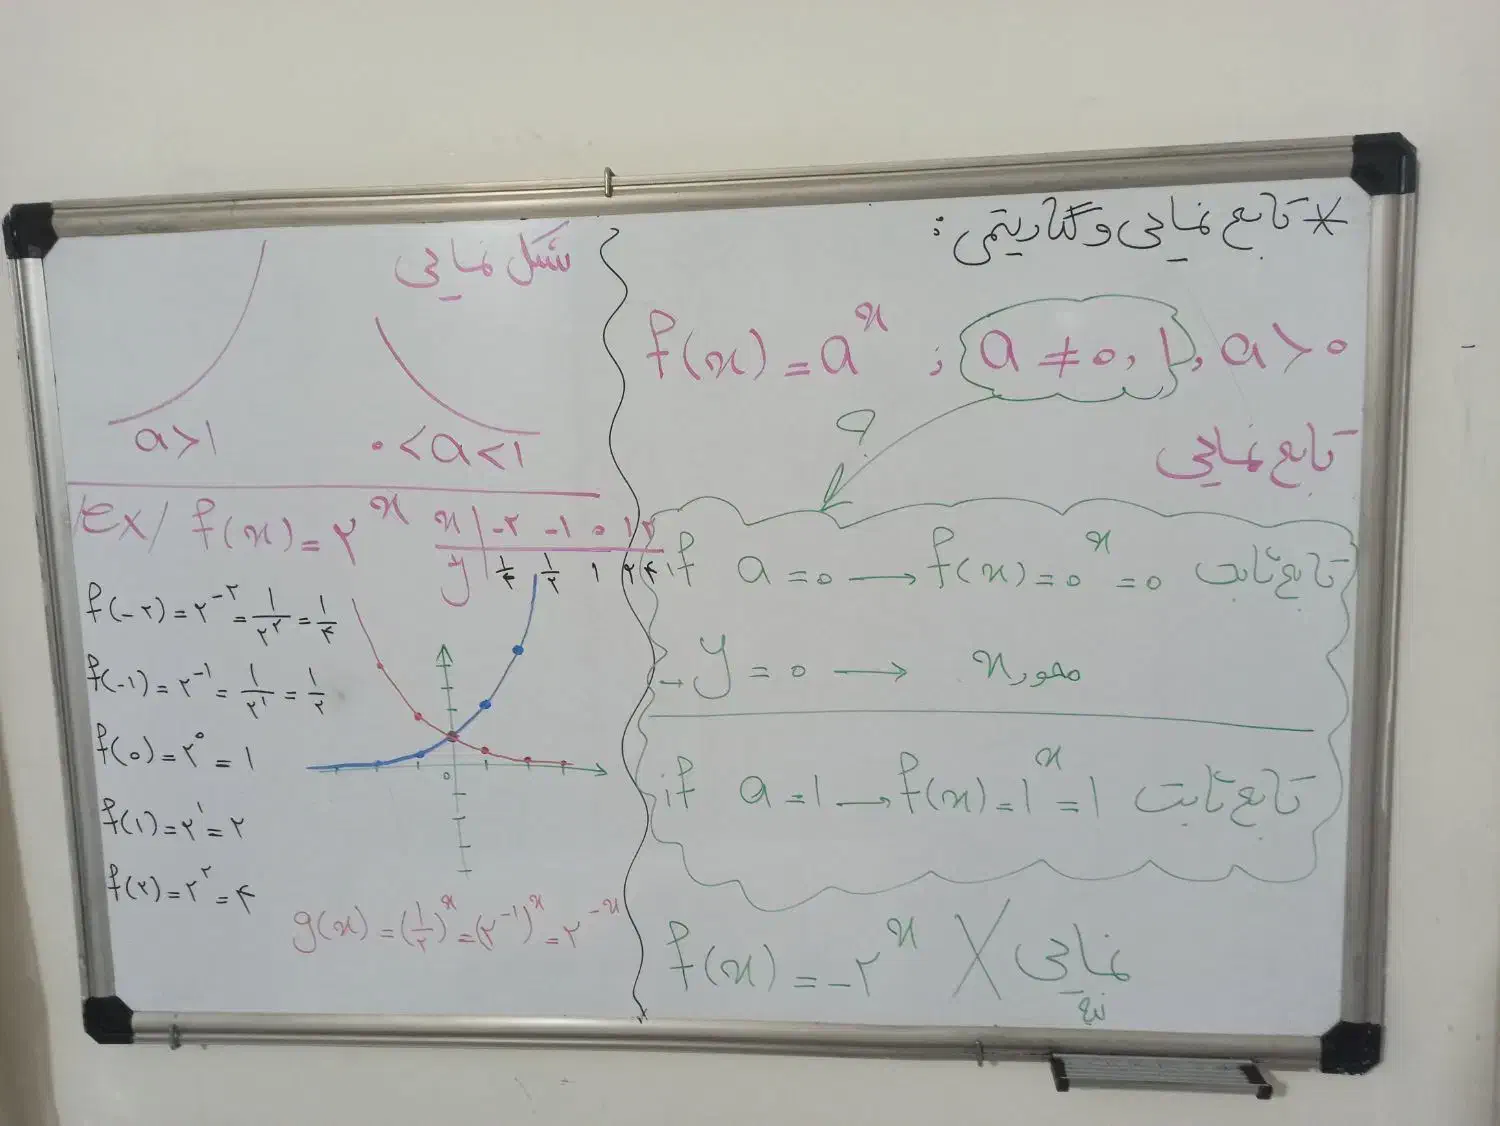 * تابع نمایی و لگاریتمی :
f(x) = a^x ; a ≠ ۰, ۱, a > ۰
؟
تابع نمایی
if a = ۰ → f(x) = ۰^x = ۰ تابع ثابت
→ y = ۰ → محور x
if a = ۱ → f(x) = ۱^x = ۱ تابع ثابت
f(x) = -۲^x X نمایی
نیه
شکل نمایی
a > ۱
۰ < a < ۱
Ex/ f(x) = ۲^x
x | -۲ -۱ ۰ ۱ ۲
y | ۱/۴ ۱/۲ ۱ ۲ ۴
f(-۲) = ۲^-۲ = ۱/۲^۲ = ۱/۴
f(-۱) = ۲^-۱ = ۱/۲^۱ = ۱/۲
f(۰) = ۲^۰ = ۱
f(۱) = ۲^۱ = ۲
f(۲) = ۲^۲ = ۴
۰
g(x) = (۱/۲)^x = (۲^-۱)^x = ۲^-x